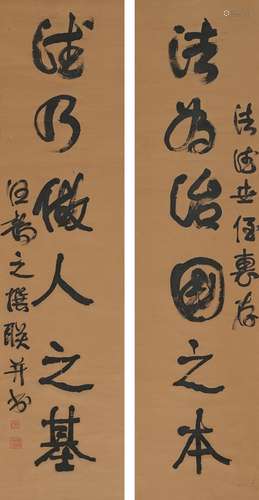 法德世侄惠存
法为治国之本
德乃做人之基
之撰联并书